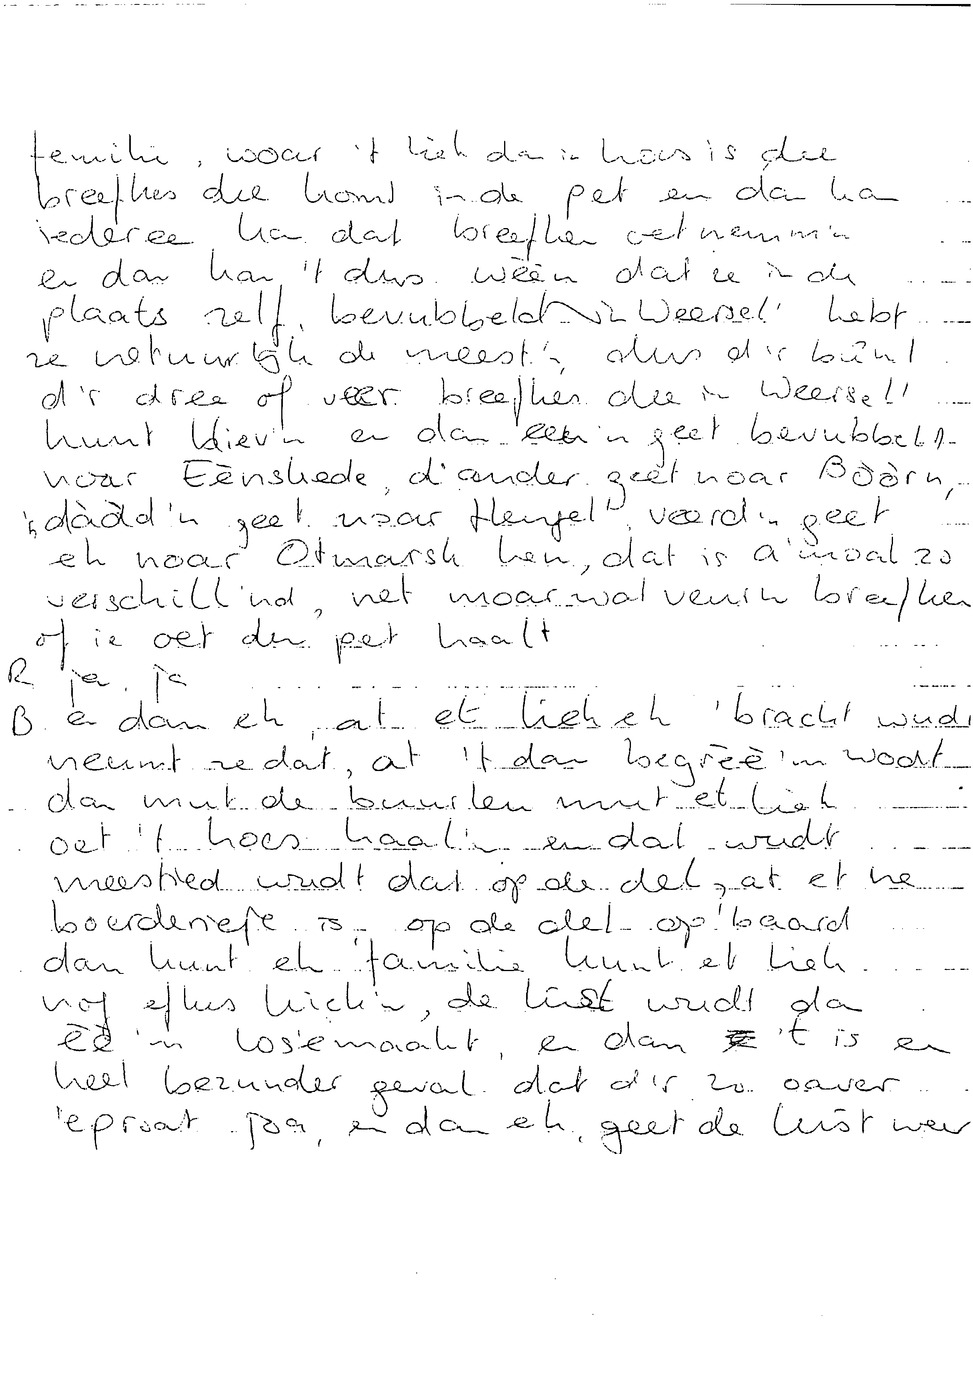 femilie, woar 't liek dan in hoes is die
breefkes die komt in de pet en dan ka
iederee ka dat breefken oet nemm'n
en dan kan 't dus wèèn dat ze in de
plaats zelf, bevubbeeld in Weersel' hebt
ze netuurlijk de meest'n, dus d'r bûnt
d'r dree of veer breefkes die in Weersel'
kunt bliev'n en dan een'n geet bevubbelt
noar Eènskede, d'ander geet noar Bòòrn,
'n dàdd'n geet noar Hengel', veerd'n geet
eh noar Otmarsk hen, dat is a'moal zo
verschill'nd, net moar wat veur'n breefken
of ie oet den pet haalt
R ja, ja
B en dan eh, at et liek eh 'bracht wudt
neumt ze dat, at 't dan begrèè'm wodt
dan mut de buurlen mut et liek
oet 't hoes haal'n en dat wudt
meestied wudt dat op de del, at et ne
boerderieje is, op de del op'baard
dan kunt eh familie kunt et liek
nog efkes kiek'n, de kist wudt dan
èè'm los'emaakt, en dan 't is en
heel bezunder geval dat d'r zo oaver
'eproat joa, en dan eh, geet de kist weer